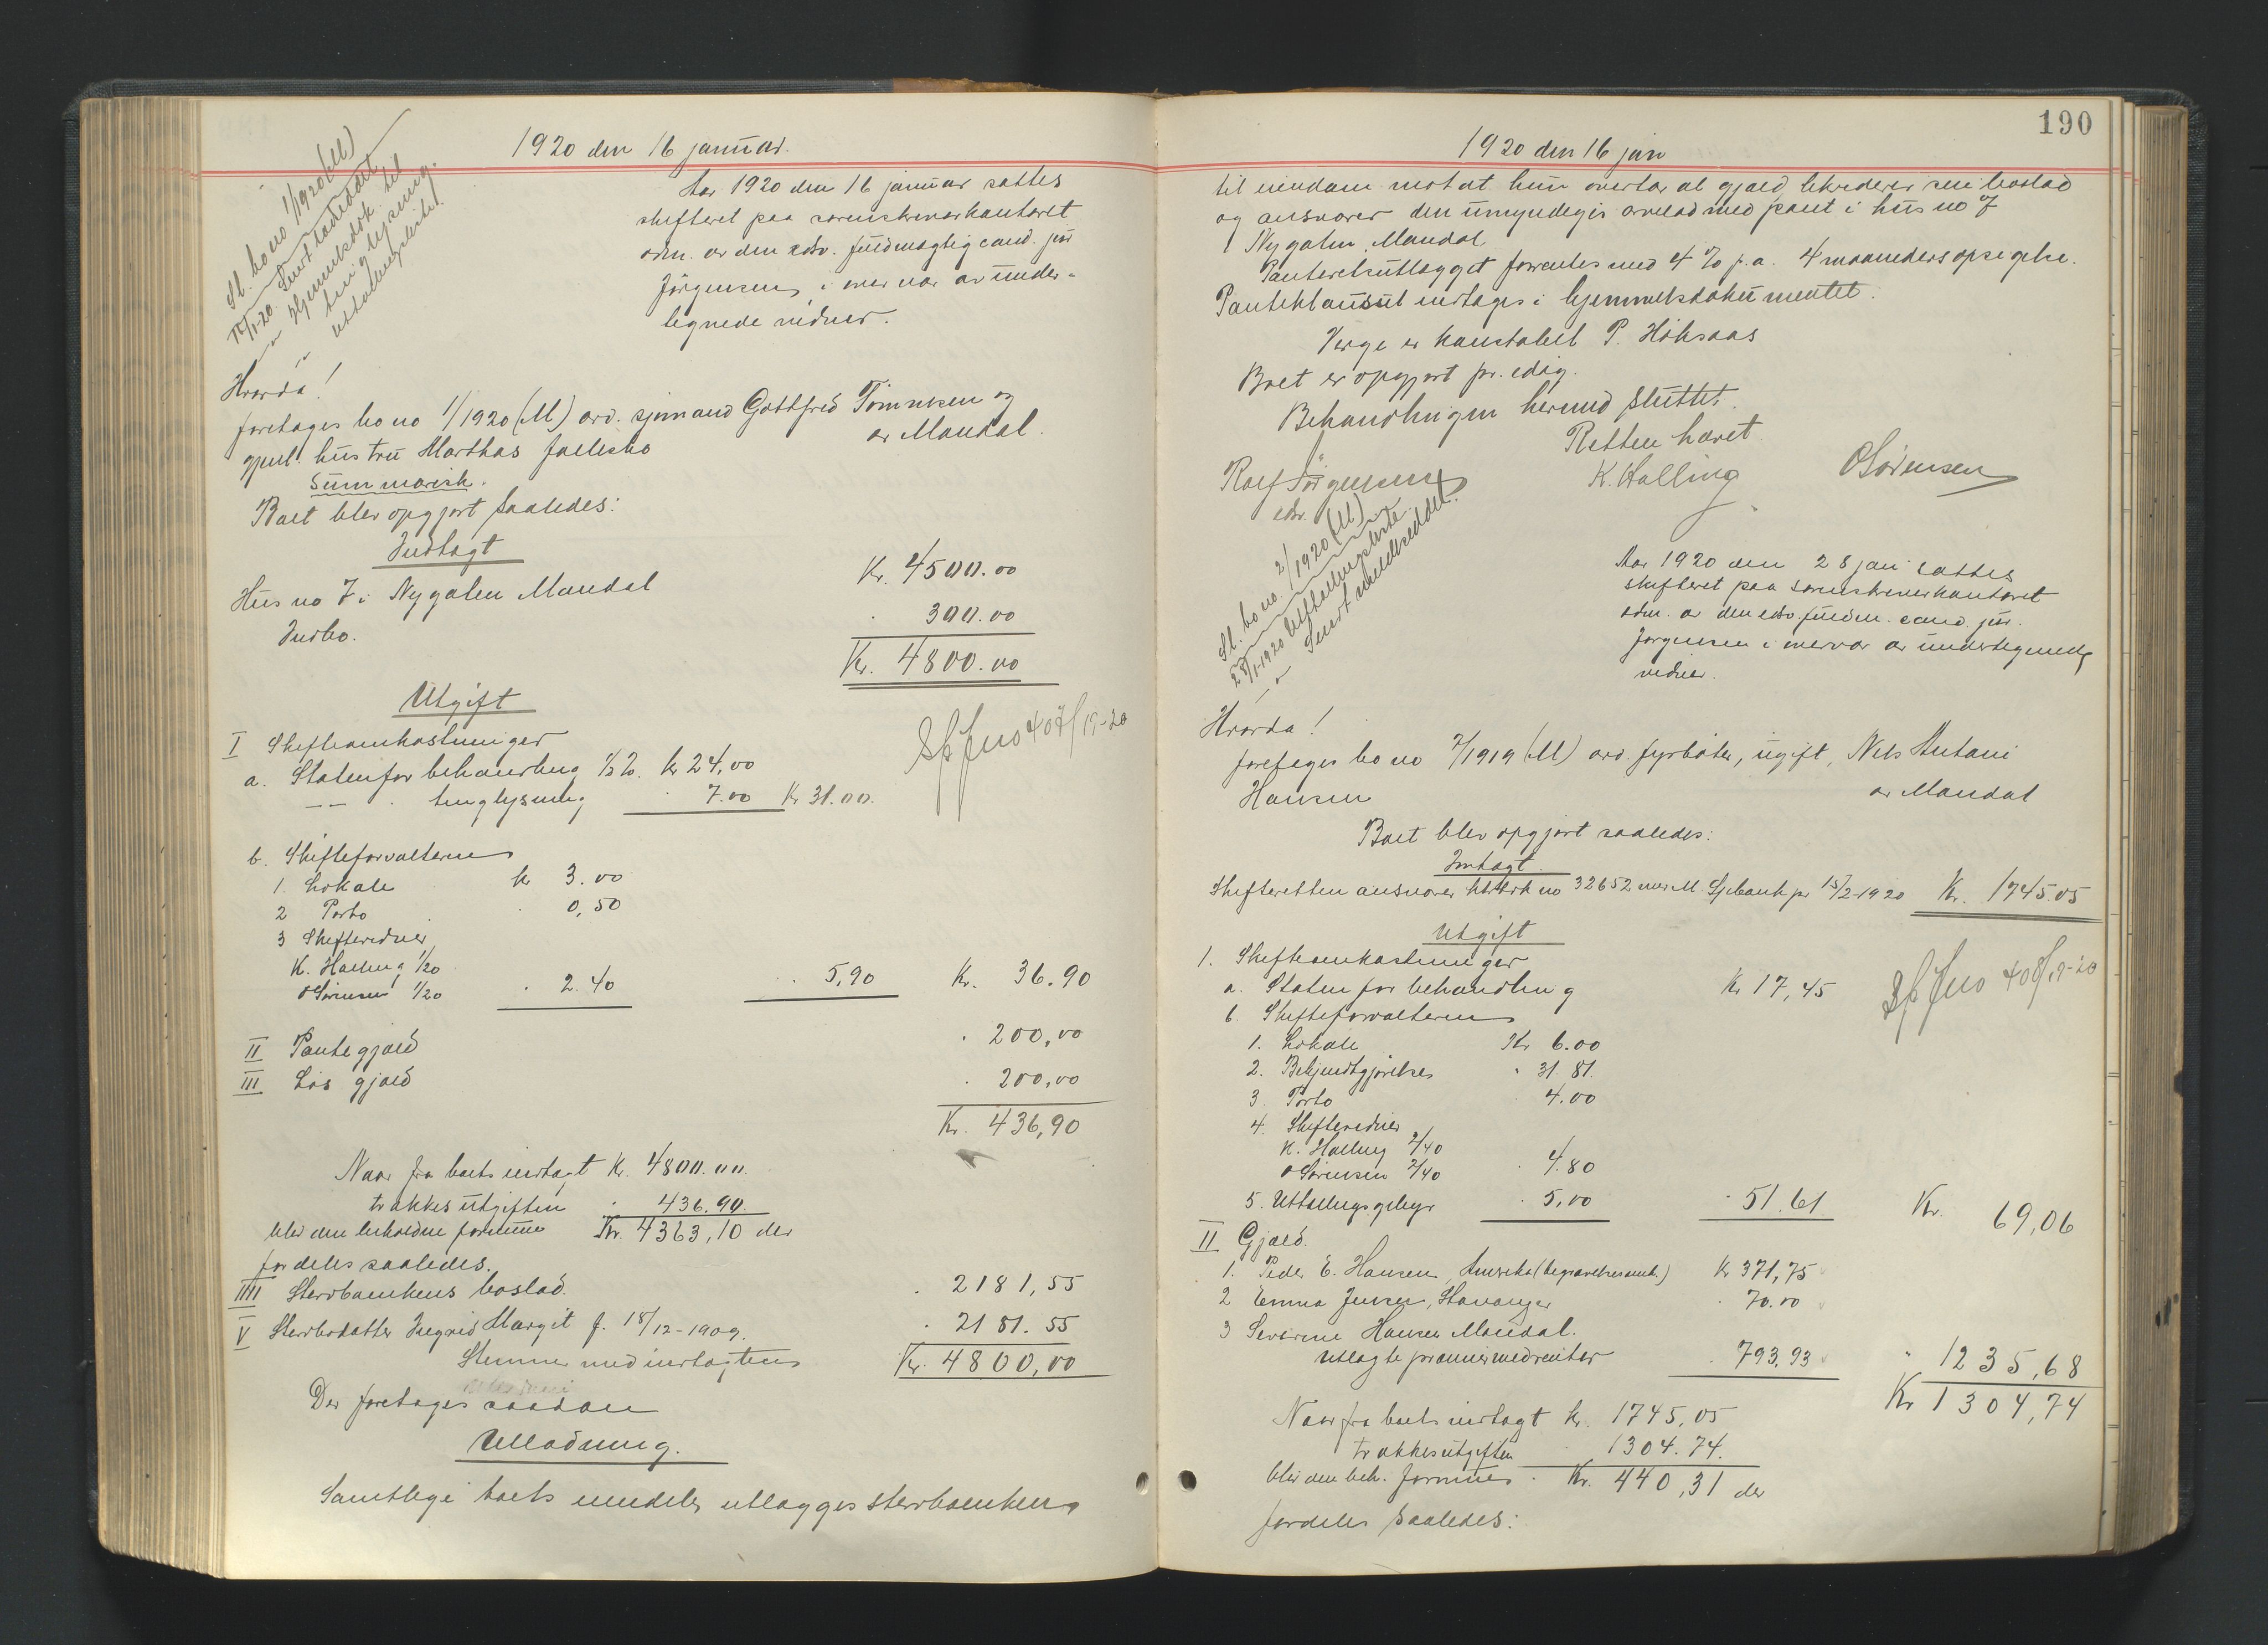 1920 den 16 januar.
Sk. bo no 1/1920 (M)
16/1-20. Sendt
" Hjemmelsdok. til
tinglysning.
"
Aar 1920 den 16 januar sattes
skifteret paa sorenskriverkontoret
adm. av den edsv. fuldmægtig cand. jur
Jörgensen i overvær av under-
tegnede vidner.
Hvorda!
foretages bo no 1/1920 (M) avd. sjømand Gottfred Tönnesen og
gjenl. hustru Marthas fællesbo av Mandal.
Summarisk.
Boet blev opgjort saaledes:
Indtægt
Hus no 7 i Nygaten Mandal Kr. 4500.00
Indbo. " 300.00
Kr. 4800.00
Utgift
I Skifteomkostninger
a. Staten for behandling ½ %. kr 24,00
— " — . tinglysning " 7.00 Kr 31.00.
Sp. Jno 407/19-20
b. Skifteforvalteren
1. Lokale kr 3.00
2 Porto " 0,50
3 Skiftevidner
K. Halling 1/20
O Sörensen 1/20 " 2.40 " 5,90 Kr. 36.90
II Pantegjæld " 200,00
III Lös gjæld " 200,00
Kr. 436,90
Naar fra boets indtægt Kr. 4800.00.
trækkes utgiften " 436.90.
blir den beholdne formue Kr. 4363,10 der
fordeles saaledes.
IIII Stervboenkens boslod. " 2181,55
V Stervbodatter Ingrid Margit f. 18/12-1909. " 2181.55
Stemmer med indtægten Kr. 4800,00
Der foretages saadan
Utlodning.
Samtlige boets eiendele utlægges stervboenken
190
1920 den 16 jan
til eiendom mot at hun overtar al gjæld, likviderer sin boslod
og ansvarer den umyndiges arvelod med pant i hus no 7
Nygaten, Mandal
Panteretsutlægget forrentes med 4 % p.a. 4 maaneders opsigelse.
Panteklausul indtages i hjemmelsdokumentet.
Verge er konstabel P. Höksaas
Boet er opgjort pr. idag.
Behandlingen hermed sluttet.
Retten hævet
Rolf Jörgensen K. Halling OSörensen
edsv.
Sk. bo no. 2/1920 (M)
28/1-1920 Utbetalingsliste.
" Sendt
Aar 1920 den 28 jan sattes
skifteret paa sorenskriverkontoret
adm. av den edsv. fuldm. cand. jur.
Jørgensen i overvær av undertegnede
vidner.
Hvorda!
foretages bo no 7/1919 (M) avd. fyrböter, ugift, Nels Antoni
Hansen av Mandal
Boet blev opgjort saaledes:
Indtægt.
Skifteretten ansvarer bok no 32652 over M. Spbank pr 15/2-1920 Kr. 1745.05
Utgift
1. Skifteomkostninger
a. Staten for behandling Kr 17,45
Sp. Jno 408/19-20
b. Skifteforvalteren
1. Lokale Kr 6.00
2. Bekjendtgjörelser " 31.81.
3. Porto 4.00
4. Skiftevidner
K. Halling 2/40
O Sörensen 2/40 " 4.80
5. Uttællingsgebyr " 5,00 " 51.61 Kr. 69,06
II Gjæld.
1. Peder E. Hansen, Amerika (begravelsesomk.) Kr 371,75
2 Emma Jensen, Stavanger " 70.00
3 Severine Hansen Mandal.
utlagte præmier med renter " 793,93 " 1235,68
Kr 1304,74
Naar fra boets indtægt kr. 1745,05
trækkes utgiften 1304.74.
blir den beh. formue " Kr. 440,31 der
fordeles saaledes: